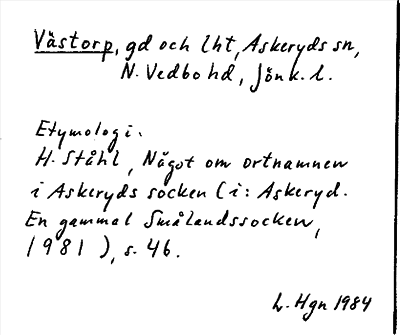 Västorp, gd och lht, Askeryds sn,
N. Vedbo hd, Jönk. l.
Etymologi:
H. Ståhl, Något om ortnamnen
i Askeryds socken (i: Askeryd.
En gammal Smålandssocken,
1981), s. 46.
L. Hgn 1984